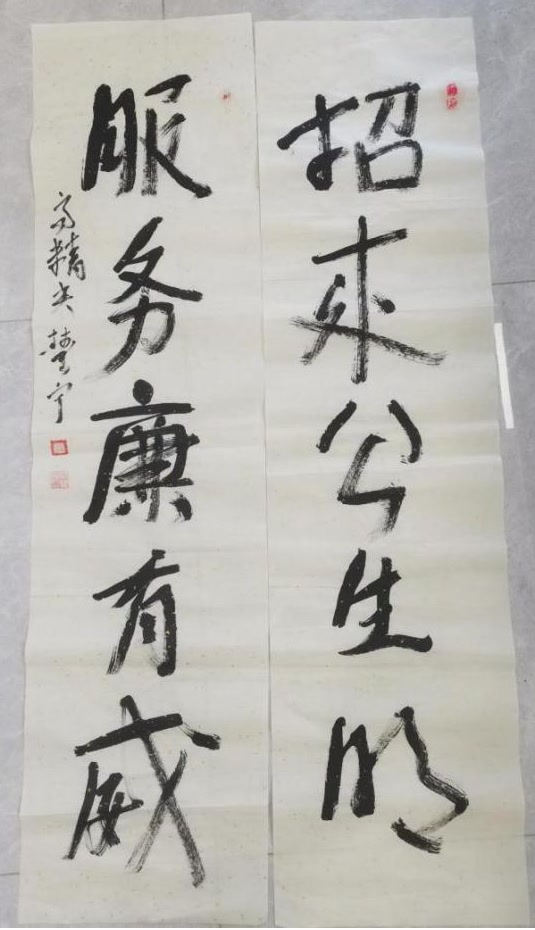 招来公生明
服务廉有威